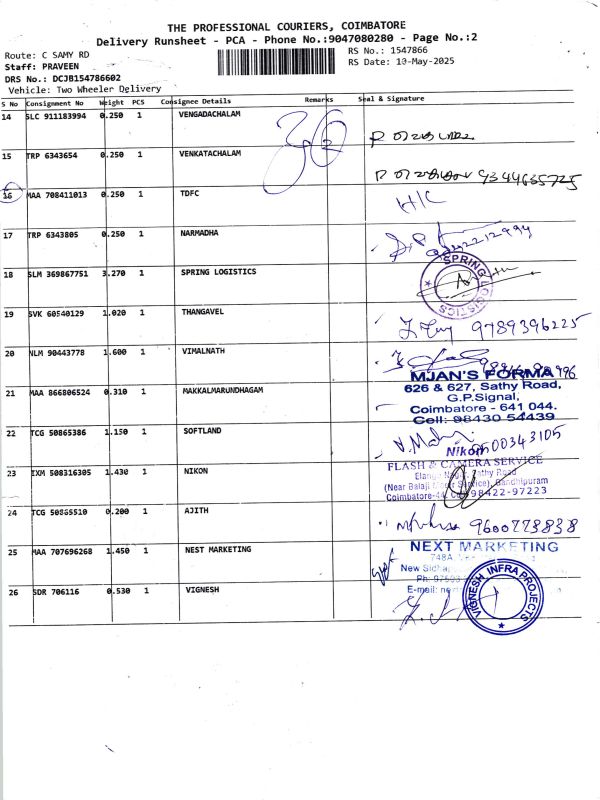 THE PROFESSIONAL COURIERS, COIMBATORE
Delivery Runsheet - PCA - Phone No.:9047080280 - Page No.:2
Route: C SAMY RD
RS No.: 1547866
Staff: PRAVEEN
RS Date: 10-May-2025
DRS No.: DCJB154786602
Vehicle: Two Wheeler Delivery
S No Consignment No Weight PCS Consignee Details Remarks Seal & Signature
14 SLC 911183994 0.250 1 VENGADACHALAM
15 TRP 6343654 0.250 1 VENKATACHALAM 9344635725
16 MAA 708411013 0.250 1 TDFC H/C
17 TRP 6343805 0.250 1 NARMADHA
18 SLM 369867751 3.270 1 SPRING LOGISTICS SPRING LOGISTICS
19 SVK 60540129 1.020 1 THANGAVEL 9789396225
20 NLM 90443778 1.600 1 VIMALNATH
21 MAA 866806524 0.310 1 MAKKALMARUNDHAGAM
MJAN'S FORMA
626 & 627, Sathy Road,
G.P.Signal,
Coimbatore - 641 044.
Cell: 98430 54439
22 TCG 50865386 1.150 1 SOFTLAND 9500343105
23 IXM 508316305 1.430 1 NIKON
Nikon
FLASH & CAMERA SERVICE
Sathy Road
(Near Balaji Service), Gandhipuram
Coimbatore-44 98422-97223
24 TCG 50865510 0.200 1 AJITH 9600773838
25 MAA 707696268 1.450 1 NEST MARKETING
NEXT MARKETING
26 SDR 706116 0.530 1 VIGNESH
VIGNESH INFRA PROJECTS